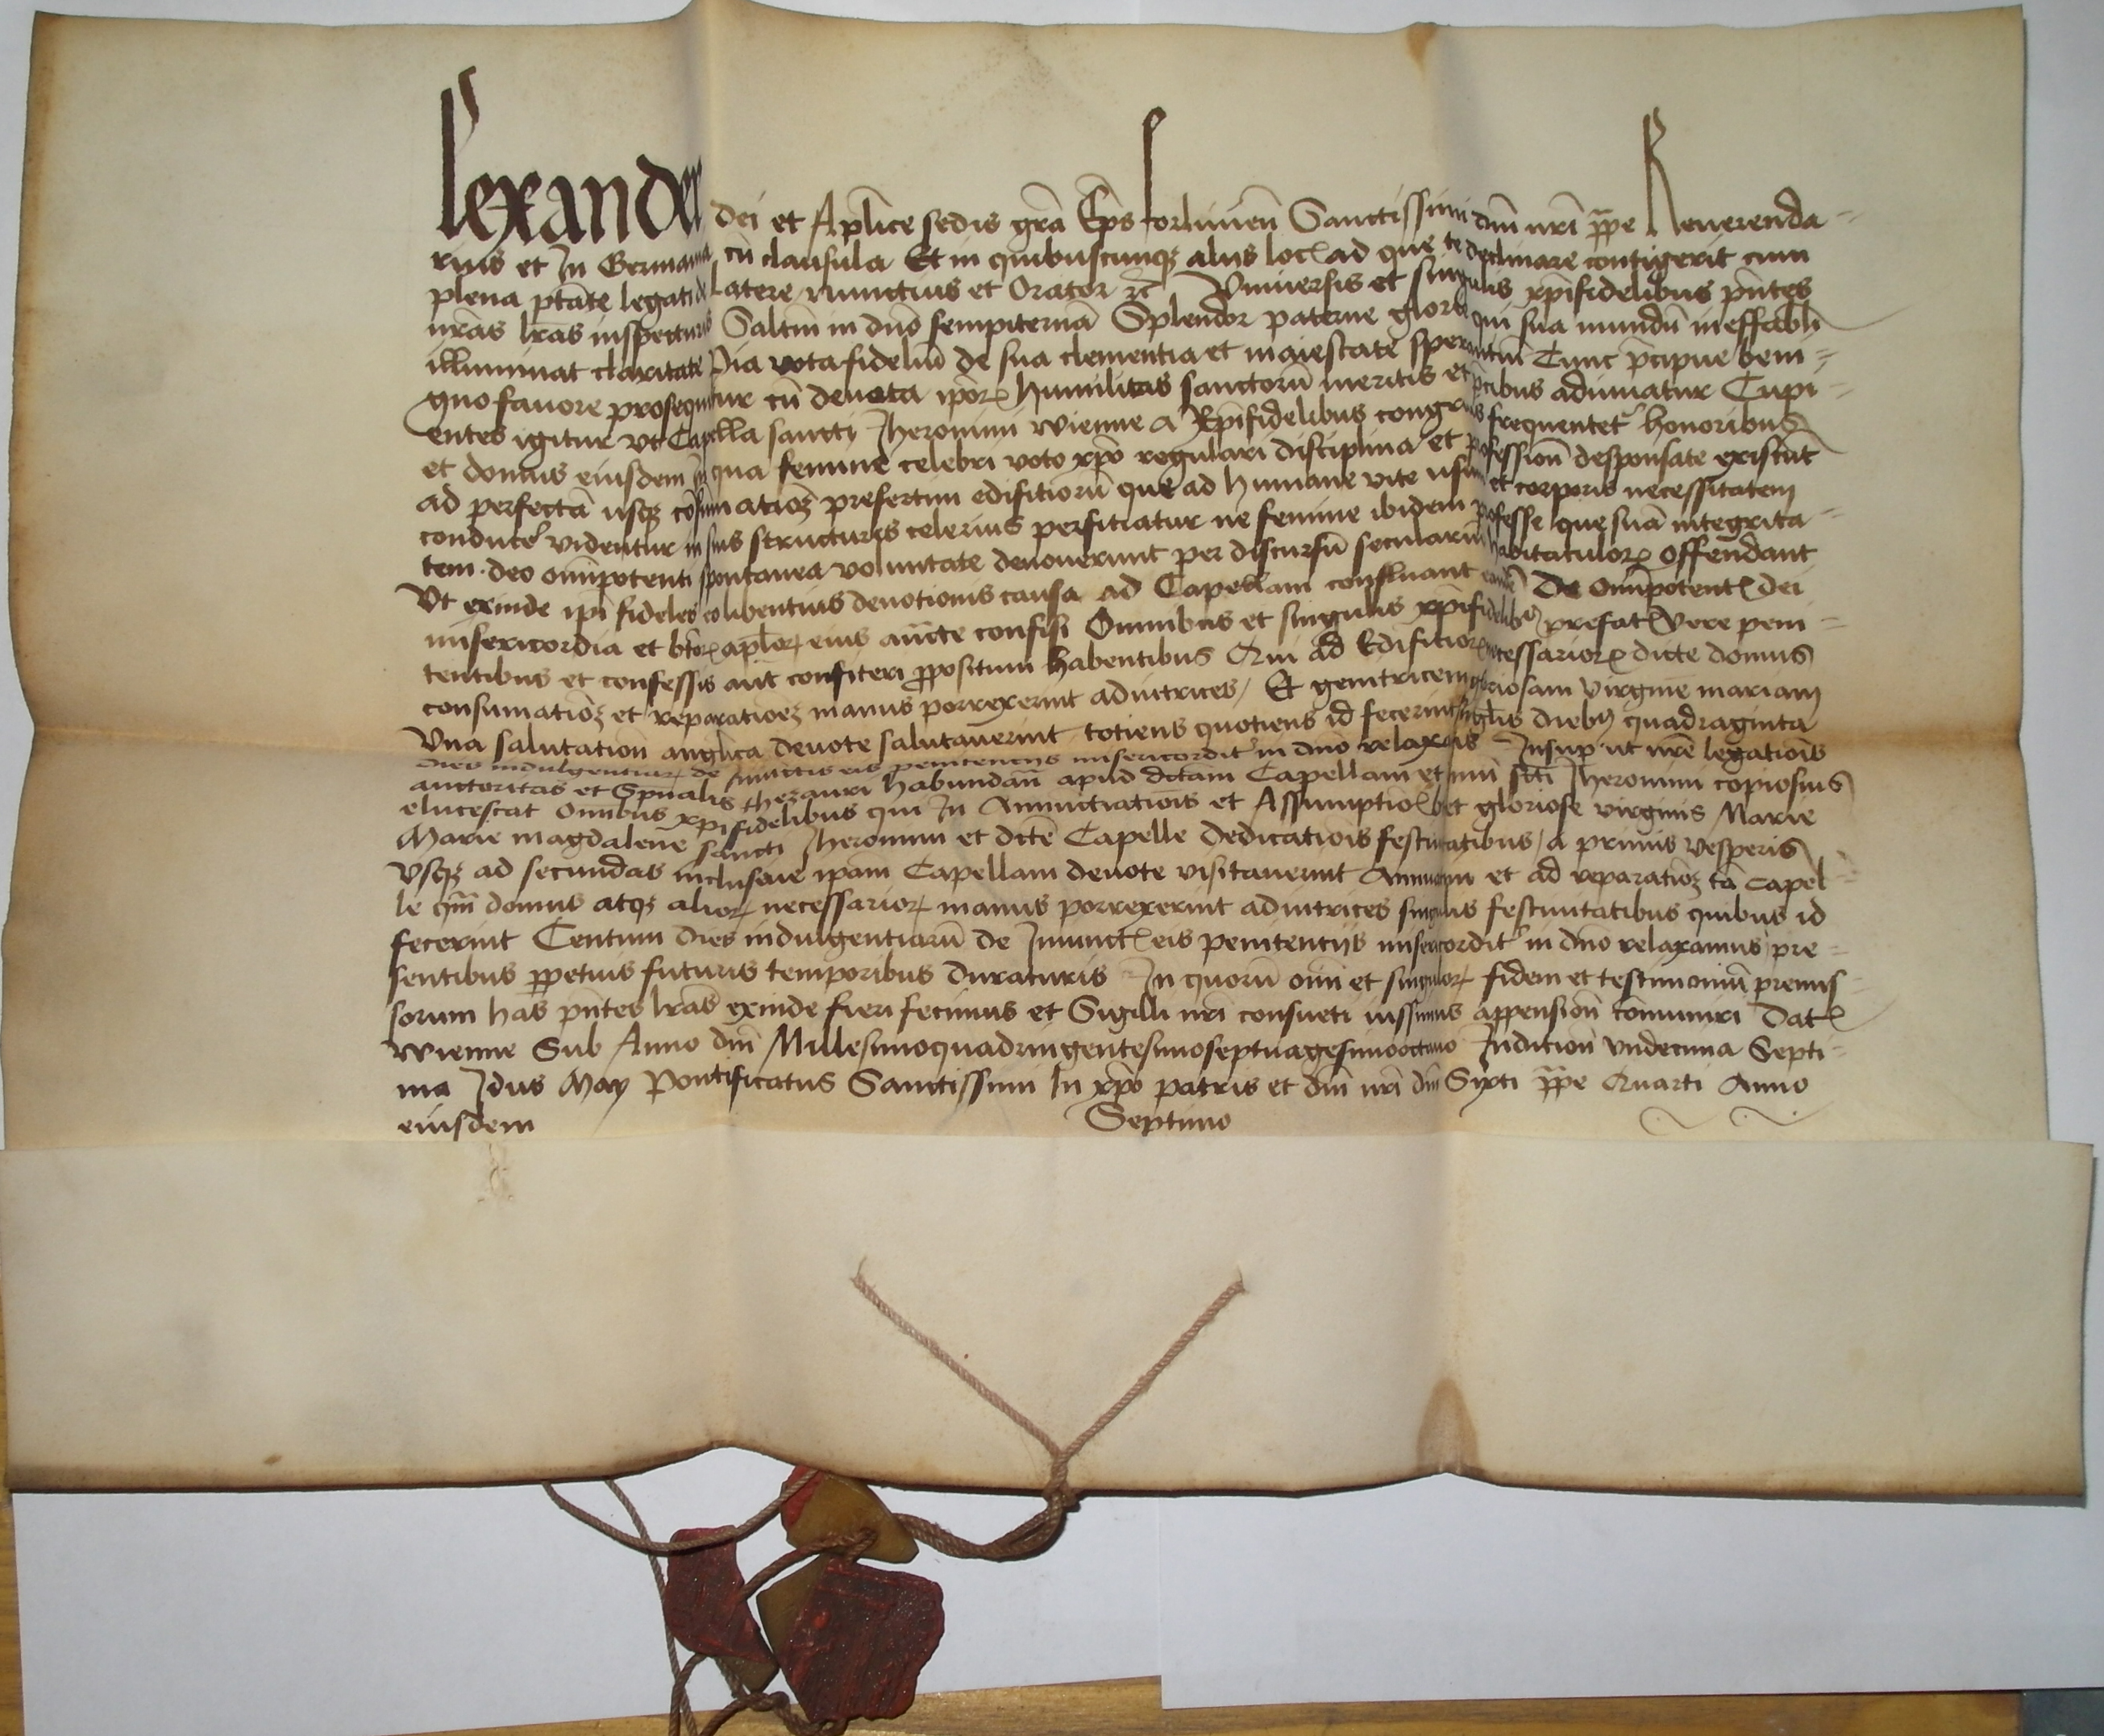 lexander dei et Aplice sedis grā Ep̄s forliuieñ Sanctissimi dn̄i nr̄i pp̄e Reuerenda-
rius et In Germania cū clausula Et in quibuscunqꝫ alijs locꝭ ad que te declinare contigerit cum
plena ptāte legati de Latere nunctius et Orator ꝛc̄ Vniuersis et singulis xp̄ifidelibus pn̄tes
nr̄as lr̄as inspecturis Saltm̄ in dnō sempiternā Splendor paterne glorie qui sua mundū ineffabli
illuminat claritate Pia vota fideliū de sua clementia et maiestate sperantiū Tunc p̄cipue beni-
gno fauore prosequitur cū deuota ip̄oꝝ humilitas sanctorū meritis et p̄cibus adiuuatur Cupi-
entes igitur vt Capella sancti Iheronimi wienne a Xp̄ifidelibus congruis frequentet' honoribus
et domus eiusdem in qua femine celebri voto xp̄o regulari disciplina et ꝓfessioñ desponsate existūt
ad perfectā usqꝫ cōsumatioꝫ presertim edifitiorū que ad humane vite usum et corporis necessitatem
conduce' videntur in suis structuris celerius perfitiatur ne femine ibidem ꝓfesse que suā integrita-
tem deo om̄ipotenti spontanea voluntate deuouerunt per discursū seculariū habitatuloꝝ offendant
Vt exinde ip̄i fideles eo libentius deuotionis causa ad Capellam confluant eandē De om̄ipotentꝭ dei
misericordia et btōꝝ apl̄oꝝ eius auc̄te confisi Omnibus et singulis xp̄ifidelibꝰ prefatꝭ vere peni-
tentibus et confessis aut confiteri ꝓpositum habentibus Qui ad Edifitioꝝ necessarioꝝ dicte domus
consumatioꝫ et reparatioeꝫ manus porrexerint adiutrices, Et genitricem gloriosam virginē mariam
Vna salutatioñ anglica deuote salutauerint totiens quotiens id fecerint singlis diebꝰ quadraginta
dies indulgentiaꝝ de iniunctis eis penitentijs misericordit' in dnō relaxāis Insup ut nrē legatiois
auctoritas et Spūalis thezauri habundañ apud dictam Capellam et mū sc̄ti Iheronimi copiosius
elucescat Omnibus xp̄ifidelibus qui In Annuntiatiois et Assumptioꝭ bet gloriose virginis Marie
Marie magdalene sancti Iheronimi et dictē Capelle dedicatiois festiuitatibus, a primis vesperis
vsqꝫ ad secundas inclusiue ip̄am Capellam deuote visitauerint Annuatim et ad reparatioꝫ tā Capel-
le qm̄ domus atqꝫ alioꝝ necessarioꝝ manus porrexerint adiutrices singulis festiuitatibus quibus id
fecerint Centum dies indulgentiarū de Iniunctꝭ eis penitentijs misericordit' in dnō relaxamus pre-
sentibus ꝑpetuis futuris temporibus duraturis In quorū om̄i et singuloꝝ fidem et testimoniū premis-
sorum has pn̄tes lr̄as exinde fieri fecimus et Sigilli nr̄i consueti iussimus appensioñ com̄uniri Datꝭ
wienne Sub Anno dn̄i Millesimoquadringentesimoseptuagesimooctauo Inditioñ vndecima Septi-
ma Idus May Pontificatus Sanctissimi In xp̄o patris et dn̄i nr̄i dn̄i Sixti pp̄e Quarti Anno
eiusdem Septimo